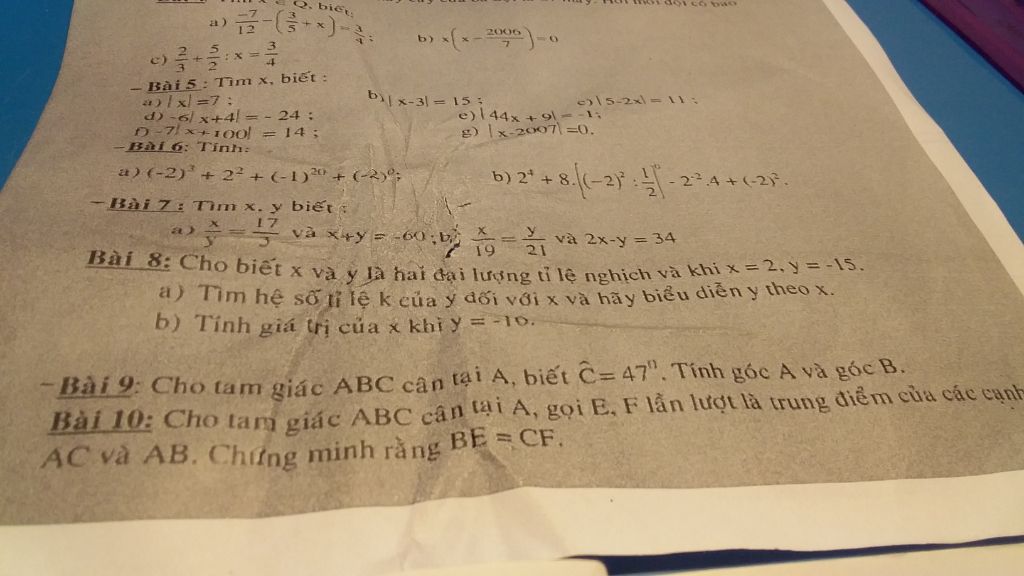 x ∈ Q, biết:
a) -7/12 - (3/5 + x) = 3/4; b) x(x - 2006/7) = 0
c) 2/3 + 5/2 : x = 3/4
- Bài 5 : Tìm x, biết :
a) |x| =7 ; b) |x-3| = 15 ; c) |5-2x| = 11 ;
d) -6|x+4| = - 24 ; e) |44x + 9| = -1;
f) -7|x+100| = 14 ; g) |x-2007| =0.
- Bài 6: Tính:
a) (-2)³ + 2² + (-1)²⁰ + (-2)⁰; b) 2⁴ + 8.[(-2)² : 1/2]⁰ - 2⁻².4 + (-2)².
- Bài 7 : Tìm x, y biết :
a) x/y = 17/3 và x+y = -60 ; b) x/19 = y/21 và 2x-y = 34
Bài 8: Cho biết x và y là hai đại lượng tỉ lệ nghịch và khi x = 2, y = -15.
a) Tìm hệ số tỉ lệ k của y đối với x và hãy biểu diễn y theo x.
b) Tính giá trị của x khi y = -10.
- Bài 9: Cho tam giác ABC cân tại A, biết Ĉ = 47⁰. Tính góc A và góc B.
Bài 10: Cho tam giác ABC cân tại A, gọi E, F lần lượt là trung điểm của các cạnh
AC và AB. Chứng minh rằng BE = CF.